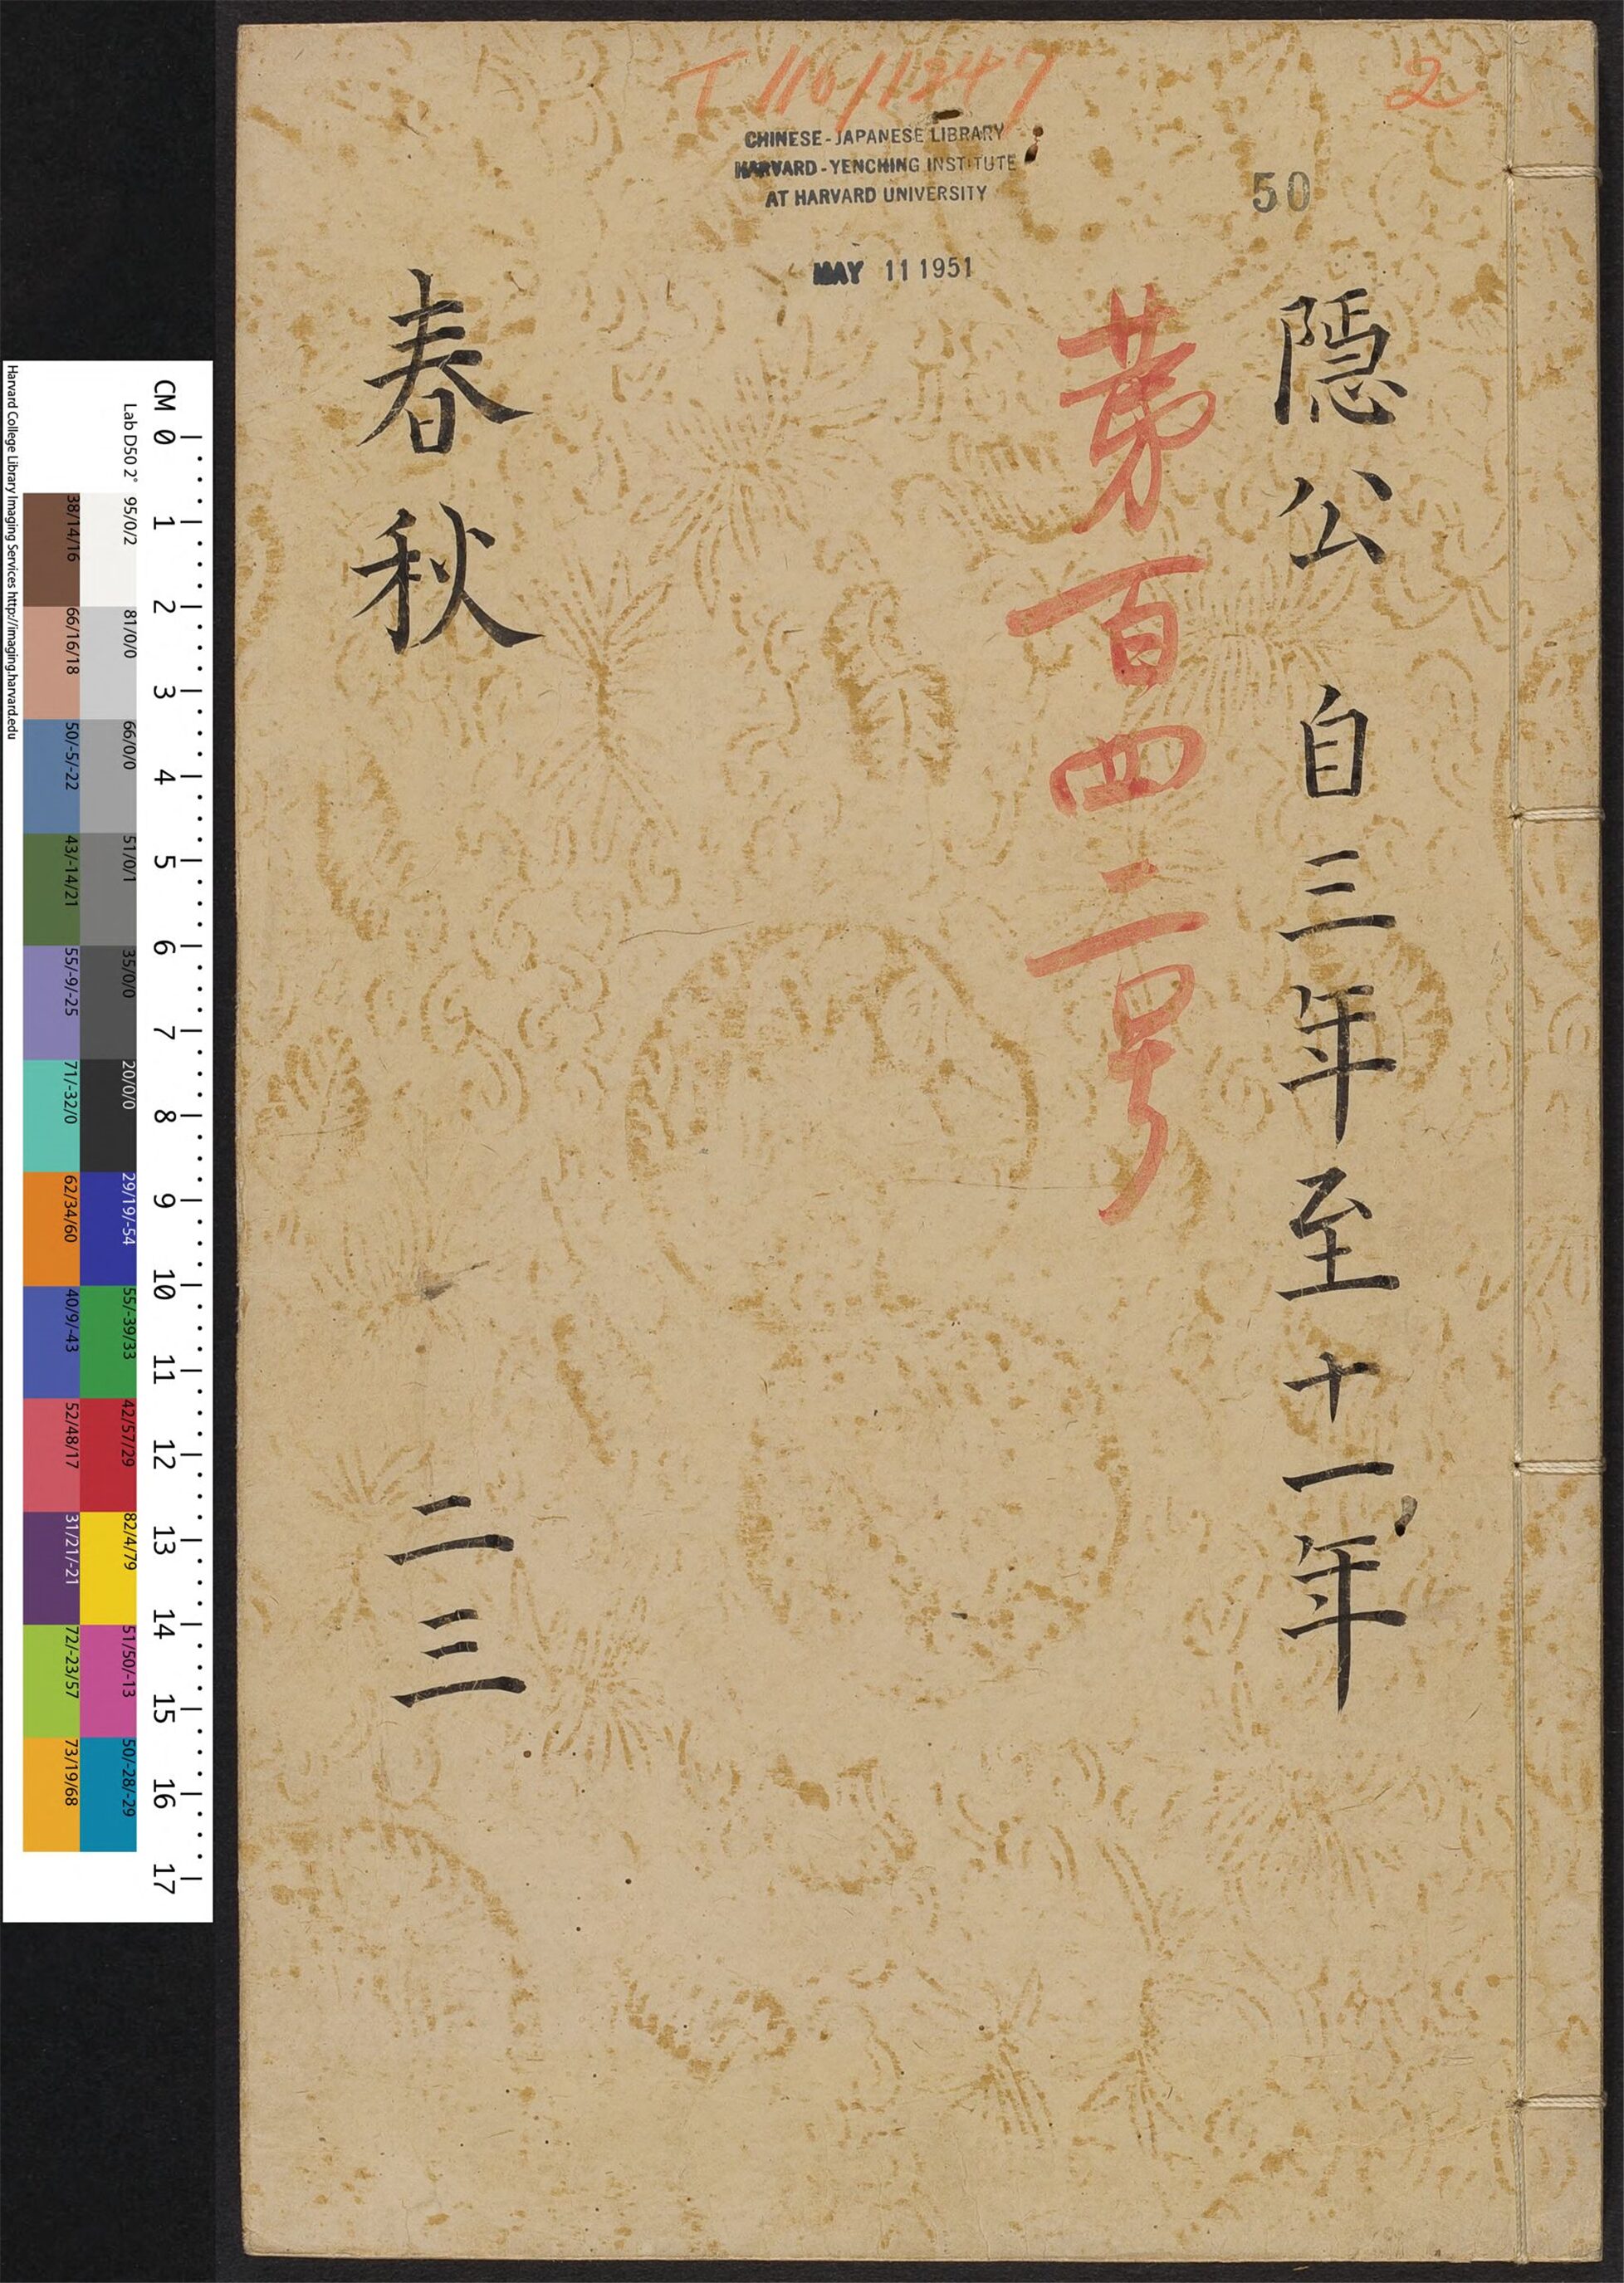 T 110/1247
2
CHINESE-JAPANESE LIBRARY
HARVARD-YENCHING INSTITUTE
AT HARVARD UNIVERSITY
50
MAY 11 1951
隠公 自三年至十一年
苐百四二号
春秋 二三
CM 0 1 2 3 4 5 6 7 8 9 10 11 12 13 14 15 16 17
Lab D50 2° 95/0/2 81/0/0 66/0/0 51/0/1 35/0/0 20/0/0 29/19/-54 55/-39/33 42/57/29 82/4/79 51/50/-13 50/-28/-29
38/14/16 66/16/18 50/-5/-22 43/-14/21 55/-9/-25 71/-32/0 62/34/60 40/9/-43 52/48/17 31/21/-21 72/-23/57 73/19/68
Harvard College Library Imaging Services http://imaging.harvard.edu